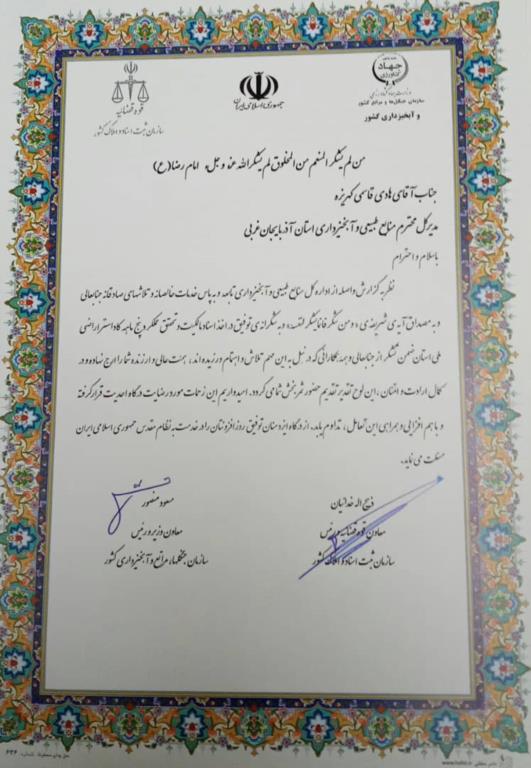 قوه قضائیه
سازمان ثبت اسناد و املاک کشور
جمهوری اسلامی ایران
جهاد
کشاورزی
سازمان جنگل‌ها و مراتع کشور
و آبخیزداری کشور
من لم یشکر المنعم من المخلوق لم یشکر الله عز و جل. امام رضا (ع)
جناب آقای هادی قاسمی کهریزه
مدیرکل محترم منابع طبیعی و آبخیزداری استان آذربایجان غربی
باسلام و احترام
نظر به گزارش واصله از اداره کل منابع طبیعی و آبخیزداری ناحیه و به پاس خدمات خالصانه و تلاشهای صادقانه جنابعالی
و به مصداق آیه‌ی شریفه‌ی، و من شکر فانما یشکر لنفسه، و به شکرانه‌ی توفیق در اخذ اسناد مالکیت و تحقق عملکرد پنج ماهه کاداستر اراضی
ملی استان ضمن تشکر از جنابعالی و همه همکارانی که در نیل به این مهم تلاش و اهتمام ورزیده اند، همت عالی و ارزنده شما را ارج نهاده و در
کمال ارادت و امتنان، این لوح تقدیر تقدیم حضور ثمربخش شما می گردد. امیدواریم این زحمات مورد رضایت درگاه احدیت قرار گرفته
و با هم افزایی و همراهی این تعامل، تداوم یابد. از درگاه ایزد منان توفیق روز افزونتان را در خدمت به نظام مقدس جمهوری اسلامی ایران
مسئلت می نماید.
ذبیح اله خدائیان
معاون قوه قضاییه و رئیس
سازمان ثبت اسناد و املاک کشور
مسعود منصور
معاون وزیر و رئیس
سازمان جنگلها، مراتع و آبخیزداری کشور